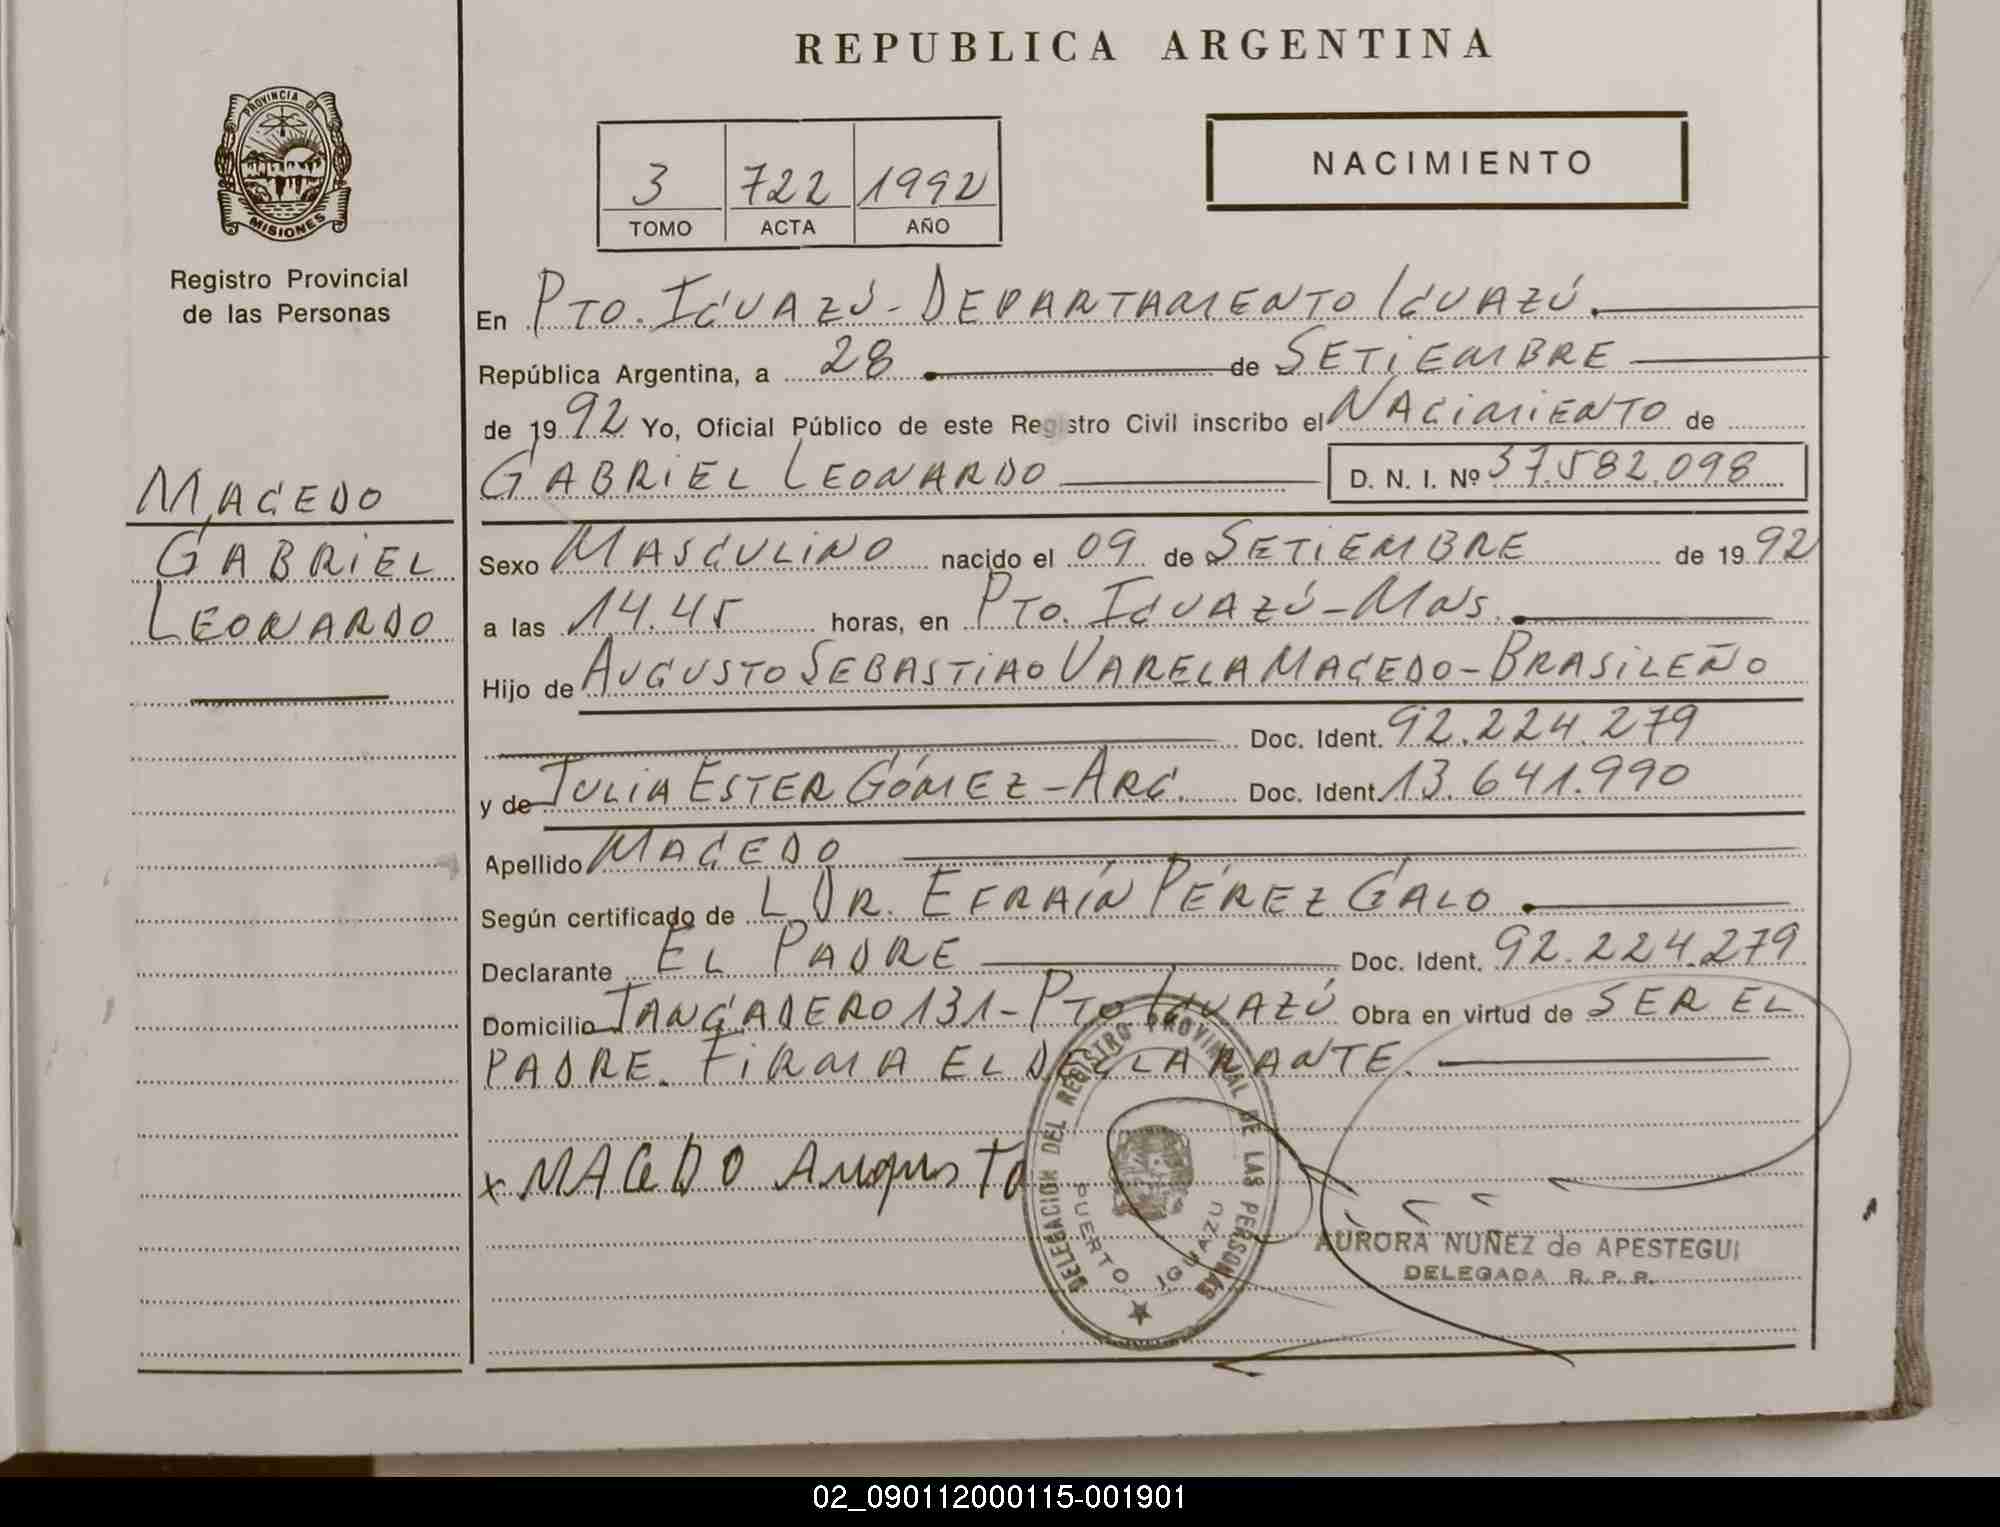 REPUBLICA ARGENTINA
PROVINCIA DE
MISIONES
Registro Provincial
de las Personas
3 722 1992
TOMO ACTA AÑO
NACIMIENTO
En PTO. IGUAZÚ - DEPARTAMENTO IGUAZÚ.
República Argentina, a 28 de SETIEMBRE
de 1992 Yo, Oficial Público de este Registro Civil inscribo el NACIMIENTO de
GABRIEL LEONARDO D. N. I. Nº 37.582.098
MACEDO
GABRIEL
LEONARDO
Sexo MASCULINO nacido el 09 de SETIEMBRE de 1992
a las 14.45 horas, en PTO. IGUAZÚ - MNS.
Hijo de AUGUSTO SEBASTIAO VARELA MACEDO - BRASILEÑO
Doc. Ident. 92.224.279
y de JULIA ESTER GÓMEZ - ARG. Doc. Ident. 13.641.990
Apellido MACEDO
Según certificado de L. DR. EFRAÍN PÉREZ GALO
Declarante EL PADRE Doc. Ident. 92.224.279
Domicilio TANGADERO 131 - PTO IGUAZÚ Obra en virtud de SER EL
PADRE. FIRMA EL DECLARANTE.
x MACEDO Augusto
DELEGACION DEL REGISTRO PROVINCIAL DE LAS PERSONAS
PUERTO IGUAZU
AURORA NUÑEZ de APESTEGUI
DELEGADA R. P. P.
02_090112000115-001901